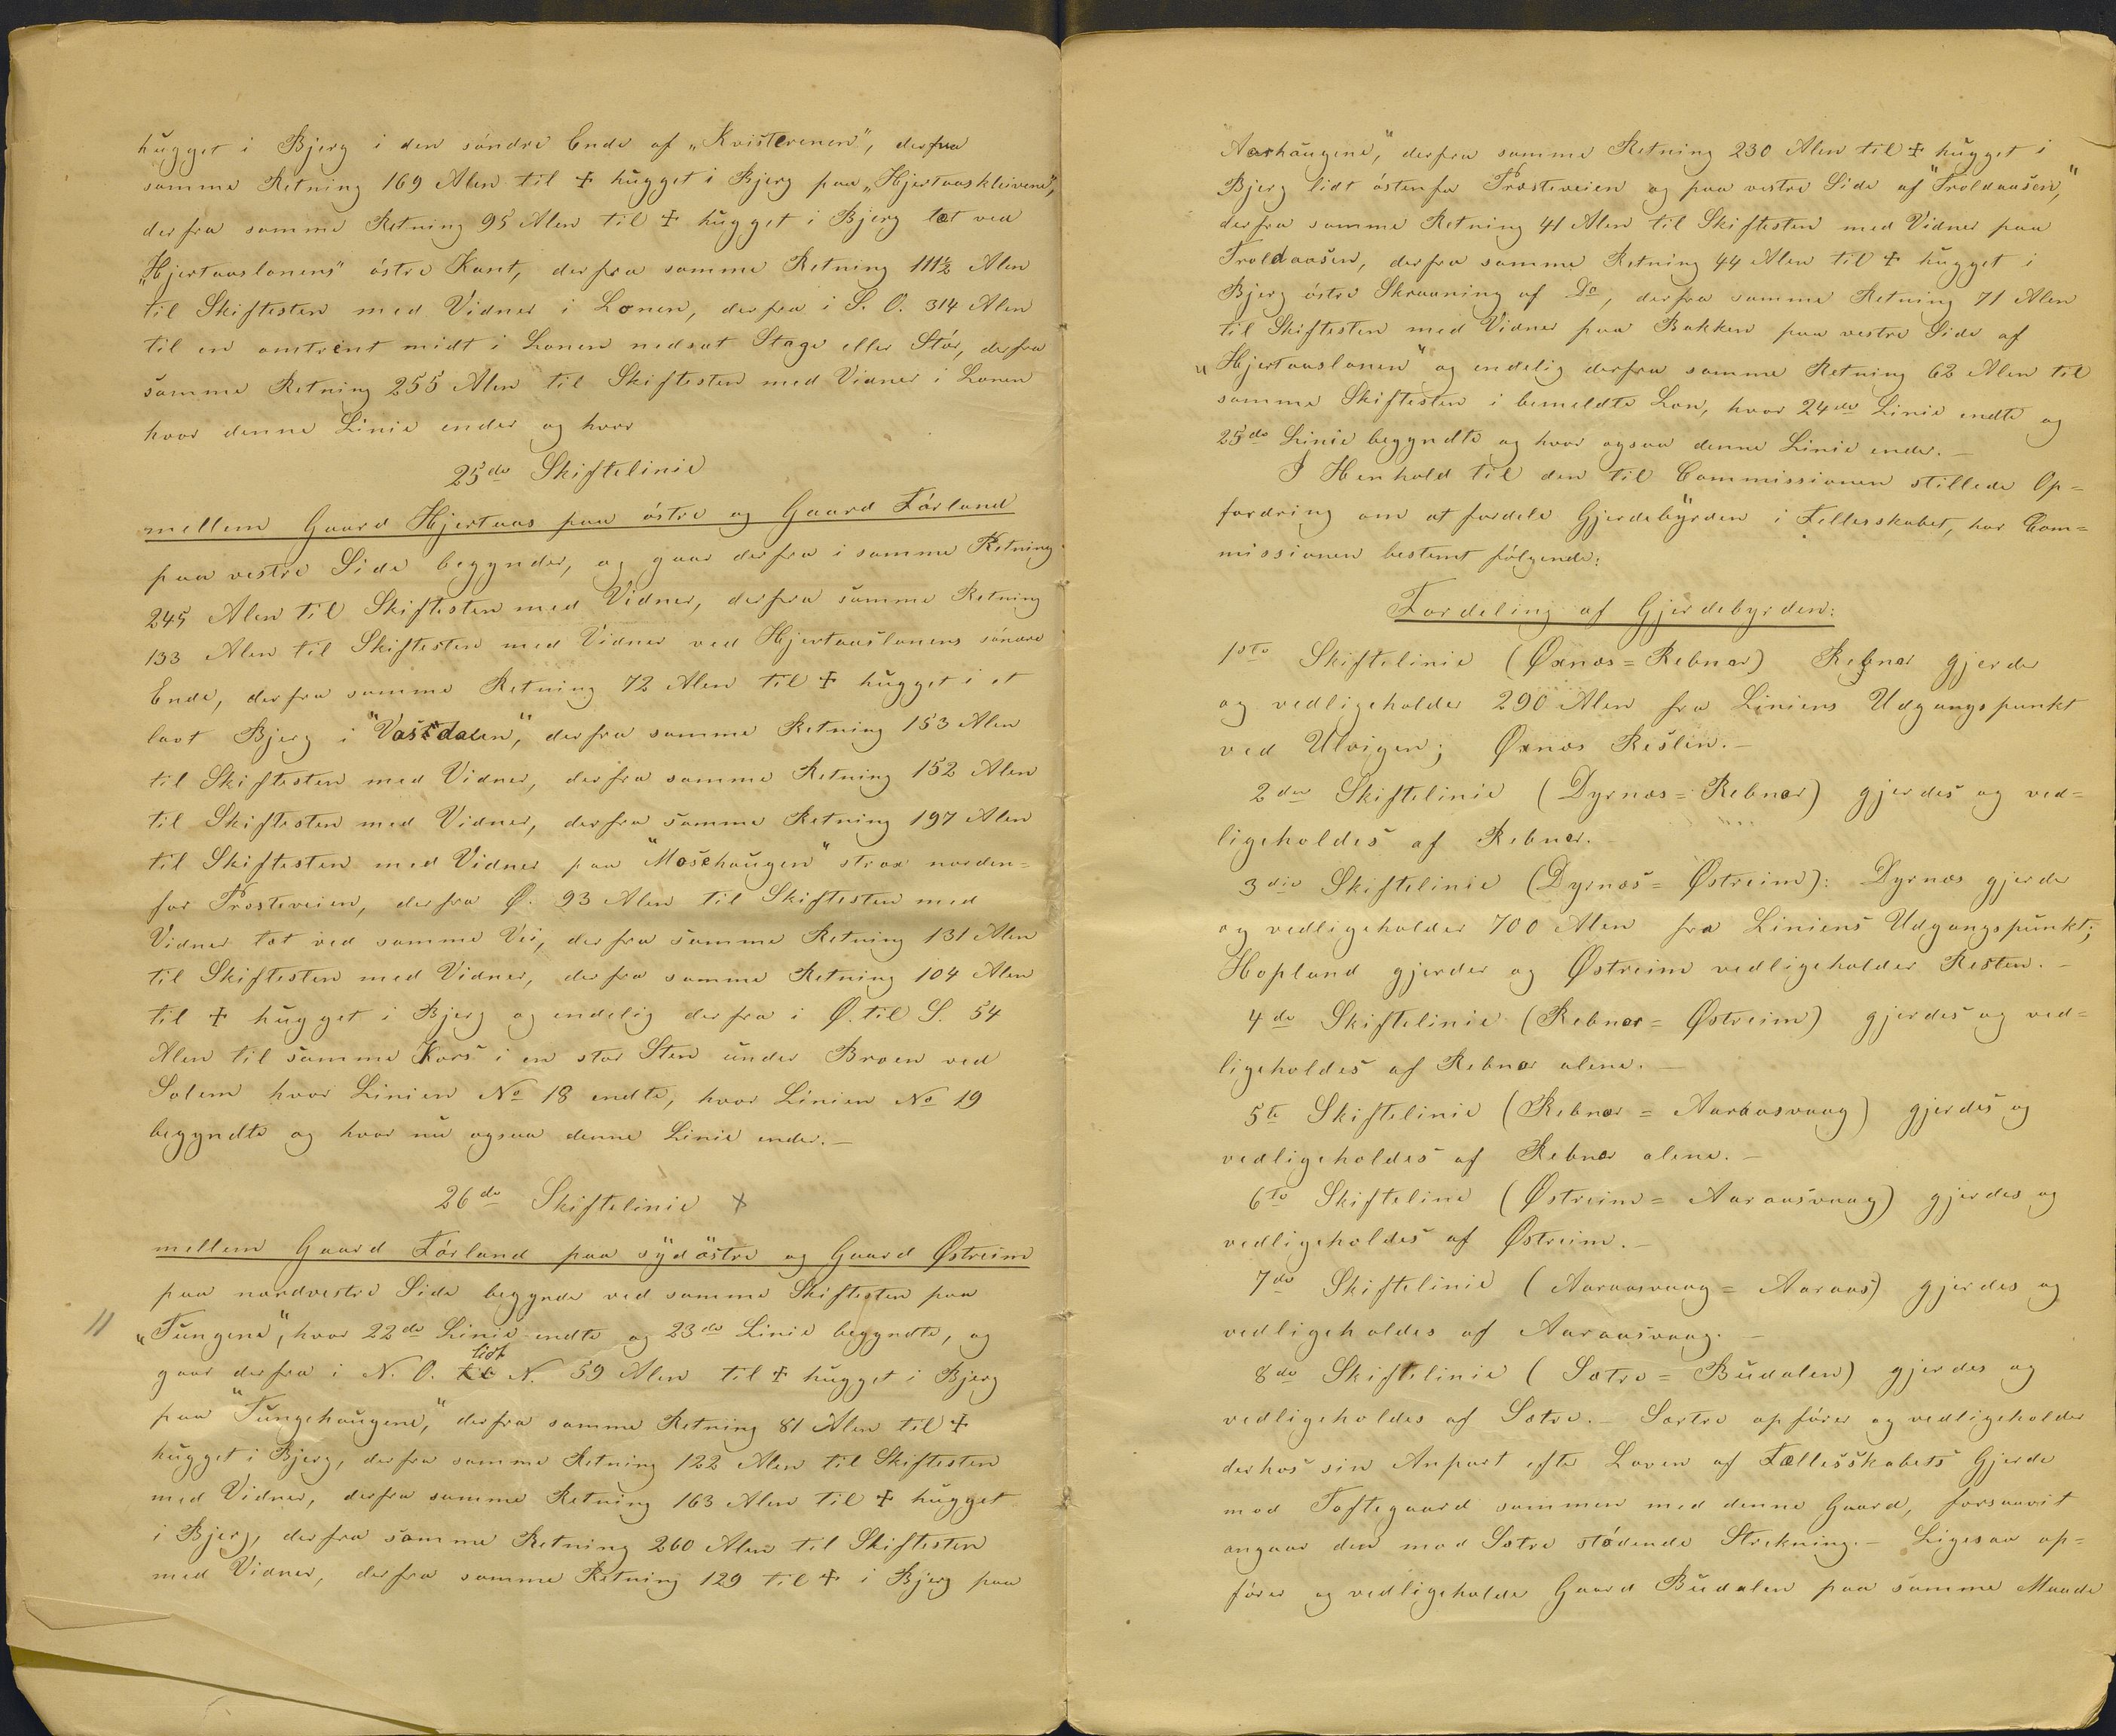 hugget i Bjerg i den søndre Ende af „Kvisterenen", derfra
samme Retning 169 Alen til ☩ hugget i Bjerg paa „Hjertaaskleivene",
derfra samme Retning 95 Alen til ☩ hugget i Bjerg tæt ved
„Hjertaaslonens" østre Kant, derfra samme Retning 111½ Alen
til Skiftesten med Vidner i Lonen, derfra i S. O. 314 Alen
til en omtrent midt i Lonen nedsat Stage eller Stør, derfra
samme Retning 255 Alen til Skiftesten med Vidner i Lonen
hvor denne Linie ender og hvor
25de Skiftelinie
mellem Gaard Hjertaas paa østre og Gaard Førland
paa vestre Side begynder, og gaar derfra i samme Retning
245 Alen til Skiftesten med Vidner, derfra samme Retning
133 Alen til Skiftesten med Vidner ved Hjertaaslonens søndre
Ende, derfra samme Retning 72 Alen til ☩ hugget i et
lavt Bjerg i "Vassdalen", derfra samme Retning 153 Alen
til Skiftesten med Vidner, derfra samme Retning 152 Alen
til Skiftesten med Vidner, derfra samme Retning 197 Alen
til Skiftesten med Vidner paa "Mosehaugen" strax norden=
for Prosteveien, derfra Ø. 93 Alen til Skiftesten med
Vidner tæt ved samme Vei, derfra samme Retning 131 Alen
til Skiftesten med Vidner, derfra samme Retning 104 Alen
til ☩ hugget i Bjerg og endelig derfra i Ø. til S. 54
Alen til samme Kors i en stor Sten under Broen ved
Solem hvor Linien No 18 endte, hvor Linien No 19
begyndte og hvor nu ogsaa denne Linie ender.—
26de Skiftelinie x
mellem Gaard Førland paa sydøstre og Gaard Østreim
paa nordvestre Side begynde ved samme Skiftesten paa
11 „Tungene", hvor 22de Linie endte og 23de Linie begyndte, og
lidt
gaar derfra i N. O. til N. 59 Alen til ☩ hugget i Bjerg
paa "Tungehaugene," derfra samme Retning 81 Alen til ☩
hugget i Bjerg, derfra samme Retning 122 Alen til Skiftesten
med Vidner, derfra samme Retning 163 Alen til ☩ hugget
i Bjerg, derfra samme Retning 260 Alen til Skiftesten
med Vidner, derfra samme Retning 129 til ☩ i Bjerg paa
Aashaugene," derfra samme Retning 230 Alen til ☩ hugget i
Bjerg lidt østenfor Prosteveien og paa vestre Side af "Troldaasen,"
derfra samme Retning 41 Alen til Skiftesten med Vidner paa
Troldaasen, derfra samme Retning 44 Alen til ☩ hugget i
Bjerg østre Skraaning af Do, derfra samme Retning 71 Alen
til Skiftesten med Vidner paa Bakken paa vestre Side af
„Hjertaaslonen" og endelig derfra samme Retning 62 Alen til
samme Skiftesten i bemeldte Lon, hvor 24de Linie endte og
25de Linie begyndte og hvor ogsaa denne Linie ender.—
I Henhold til den til Commissionen stillede Op=
fordring om at fordele Gjerdebyrden i Fellesskabet, har Com=
missionen bestemt følgende:
Fordeling af Gjerdebyrden:
1ste Skiftelinie (Øxnæs=Rebnor) Rebnor gjerder
og vedligeholder 290 Alen fra Liniens Udgangspunkt
ved Ulvigen; Øxnæs Resten.—
2den Skiftelinie (Dyrnæs=Rebnor) gjerdes og ved=
ligeholdes af Rebnor.
3die Skiftelinie (Dyrnæs=Østreim): Dyrnæs gjerde
og vedligeholder 700 Alen fra Liniens Udgangspunkt;
Hopland gjerder og Østreim vedligeholder Resten.—
4de Skiftelinie (Rebnor=Østreim) gjerdes og ved=
ligeholdes af Rebnor alene.—
5te Skiftelinie (Rebnor=Aaraasvaag) gjerdes og
vedligeholdes af Rebnor alene.—
6te Skifteline (Østreim=Aaraasvaag) gjerdes og
vedligeholdes af Østreim.—
7de Skiftelinie (Aaraasvaag=Aaraas) gjerdes og
vedligeholdes af Aaraasvaag.—
8de Skiftelinie (Sætre=Budalen) gjerdes og
vedligeholdes af Sætre.— Sætre opfører og vedligeholder
derhos sin Anpart efter Loven af Fællesskabets Gjerde
mod Toftegaard sammen med denne Gaard, forsaavit
angaar den mod Sætre stødende Strekning.— Ligesaa op=
fører og vedligeholde Gaard Budalen paa samme Maade